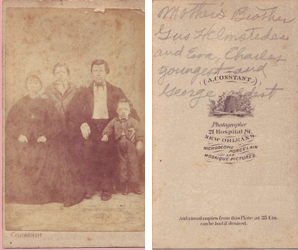 Constant
Mother's Brother
Gus
and Eva, Charles
youngest and
George oldest
A. CONSTANT
Photographer
21 Hospital St.
NEW ORLEANS.
PORCELAIN
AND
Additional copies from this Plate at 25 Cts.
can be had if desired.